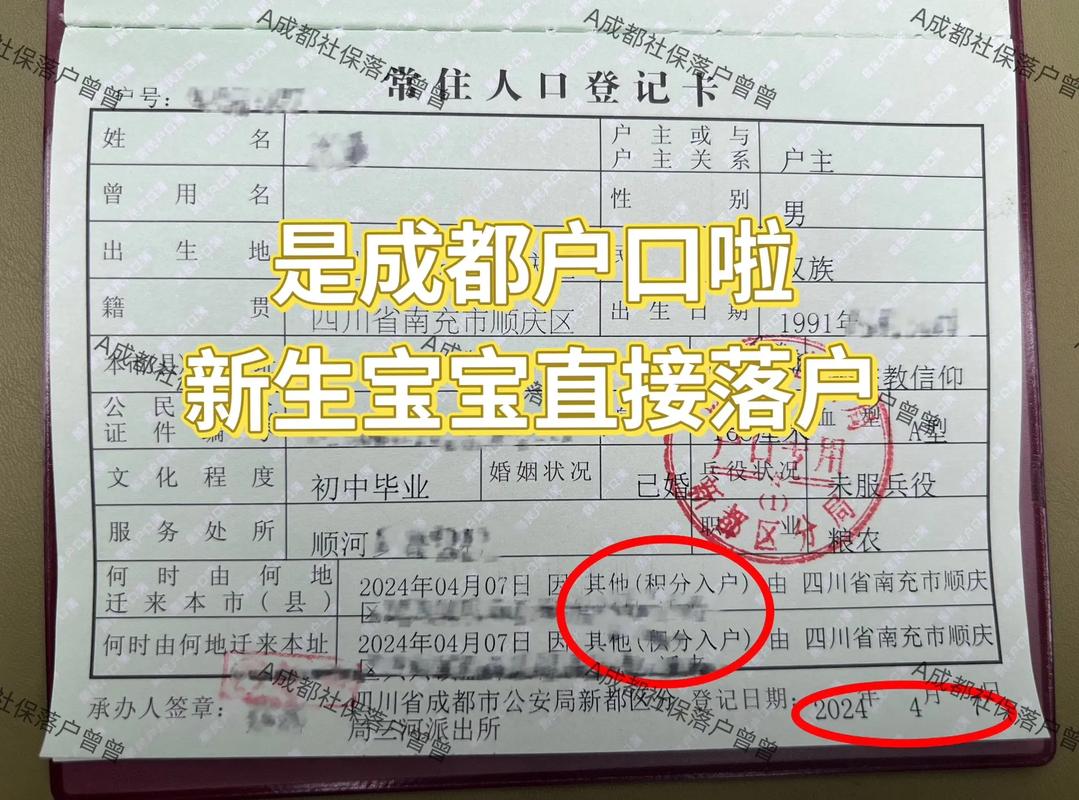 A成都社保落户曾曾
A成都社保落户曾曾
A成都社保落户曾曾
常住人口登记卡
户号：
姓名
户主或与
户主关系
户主
曾用名
性别
男
是成都户口啦
出生地
汉族
籍贯
四川省南充市顺庆区
出生日期
1991年
新生宝宝直接落户
教信仰
公民
证件编号
血型
A型
文化程度
初中毕业
婚姻状况
已婚
兵役状况
未服兵役
户口专用
(1)
新都区分局
服务处所
顺河
职业
粮农
何时由何地
迁来本市(县)
2024年04月07日 因 其他(积分入户) 由 四川省南充市顺庆
区
何时由何地迁来本址
2024年04月07日 因 其他(积分入户) 由 四川省南充市顺庆
区
A成都社保落户曾曾
A成都社保落户曾曾
A成都社保落户曾曾
承办人签章：
四川省成都市公安局新都区分
局三河派出所
登记日期：
2024年 4月 日